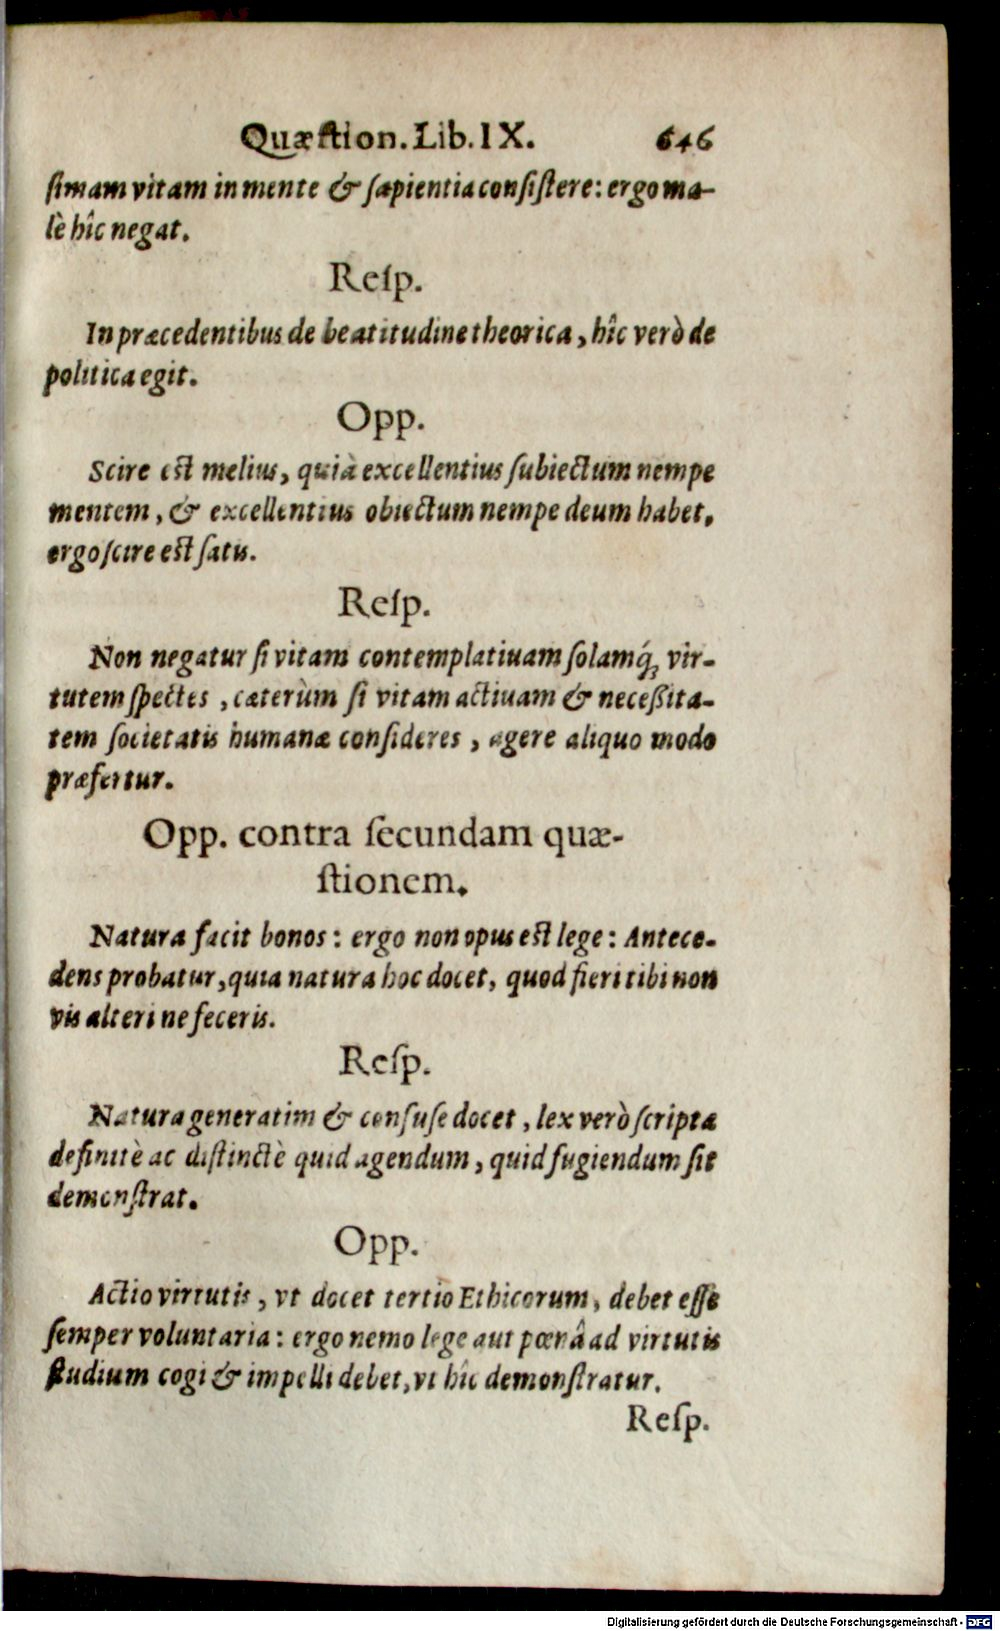 Quæſtion. Lib. IX. 646
ſimam vitam in mente & ſapientia conſiſtere: ergo ma-
lè hîc negat.
Reſp.
In præcedentibus de beatitudine theorica, hîc verò de
politica egit.
Opp.
Scire est melius, quià excellentius ſubiectum nempe
mentem, & excellentius obiectum nempe deum habet,
ergo ſcire est ſatis.
Reſp.
Non negatur ſi vitam contemplatiuam ſolamq́; vir-
tutem ſpectes, cæterùm ſi vitam actiuam & neceßita-
tem ſocietatis humanæ conſideres, agere aliquo modo
præfertur.
Opp. contra ſecundam quæ-
ſtionem.
Natura facit bonos: ergo non opus est lege: Antece-
dens probatur, quia natura hoc docet, quod fieri tibi non
vis alteri ne feceris.
Reſp.
Natura generatim & confuſe docet, lex verò ſcripta
definitè ac diſtinctè quid agendum, quid fugiendum ſit
demonſtrat.
Opp.
Actio virtutis, vt docet tertio Ethicorum, debet eſſe
ſemper voluntaria: ergo nemo lege aut pœnâ ad virtutis
ſtudium cogi & impelli debet, vt hîc demonſtratur.
Reſp.
Digitalisierung gefördert durch die Deutsche Forschungsgemeinschaft - DFG